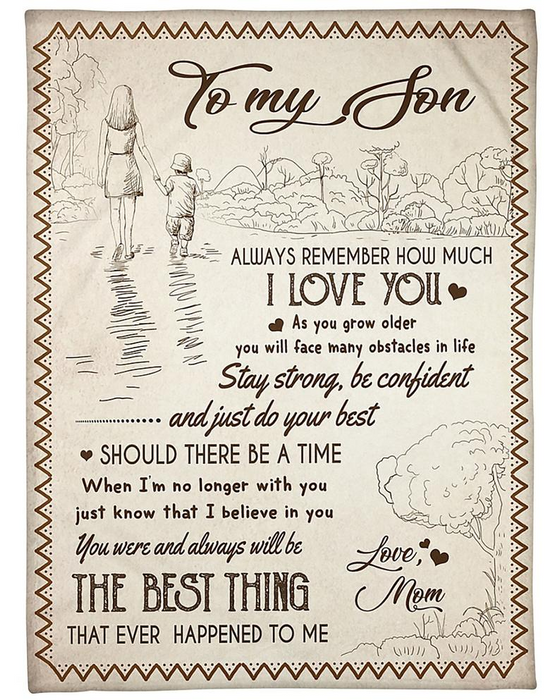 To my Son
ALWAYS REMEMBER HOW MUCH
I LOVE YOU
As you grow older
you will face many obstacles in life
Stay strong, be confident
and just do your best
SHOULD THERE BE A TIME
When I'm no longer with you
just know that I believe in you
You were and always will be
THE BEST THING
THAT EVER HAPPENED TO ME
Love,
Mom